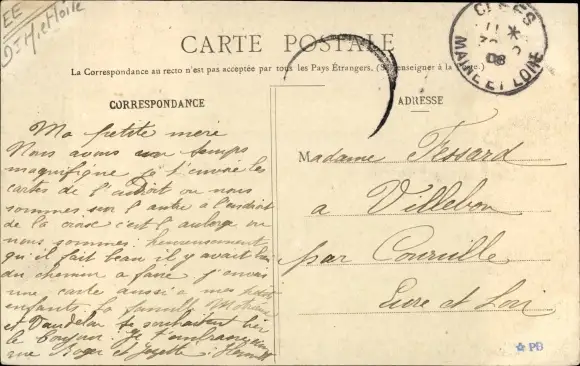 EE
CARTE POSTALE
La Correspondance au recto n'est pas acceptée par tous les Pays Étrangers. (Se renseigner à la Poste.)
CORRESPONDANCE
Ma petite mère
Nous avons un temps
magnifique je t'envoie les
cartes de l'endroit ou nous
sommes sur l'autre a l'endroit
de la croix c'est l'auberge ou
nous sommes. heureusement
qu'il fait beau il y avait
du chemin a faire j'envoie
une carte aussi a mes petits
enfants la famille
et se souhaitent bien
le bonjour. Je t'embrasse
que Roger et
ADRESSE
Madame Fessard
a Villebon
par Courville
Eure et Loir
MAINE ET LOIRE
08
PD